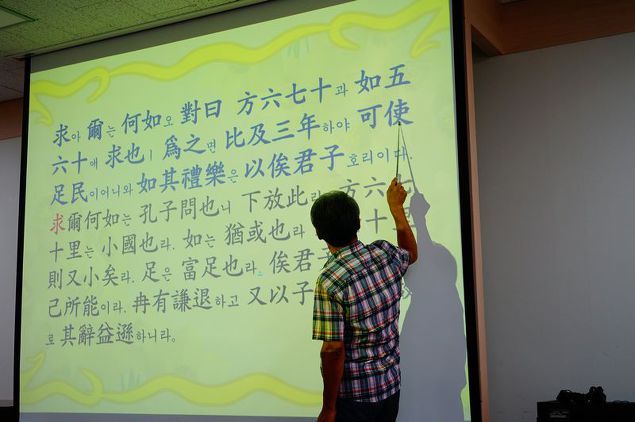 求아 爾는 何如오 對曰 方六七十과 如五
六十애 求也ㅣ 爲之면 比及三年하야 可使
足民이어니와 如其禮樂은 以俟君子호리이다.
求爾何如는 孔子問也니 下放此라 方六
十里는 小國也라. 如는 猶或也라 十
則又小矣라. 足은 富足也라. 俟君子
己所能이라. 冉有謙退하고 又以子
로 其辭益遜하니라。